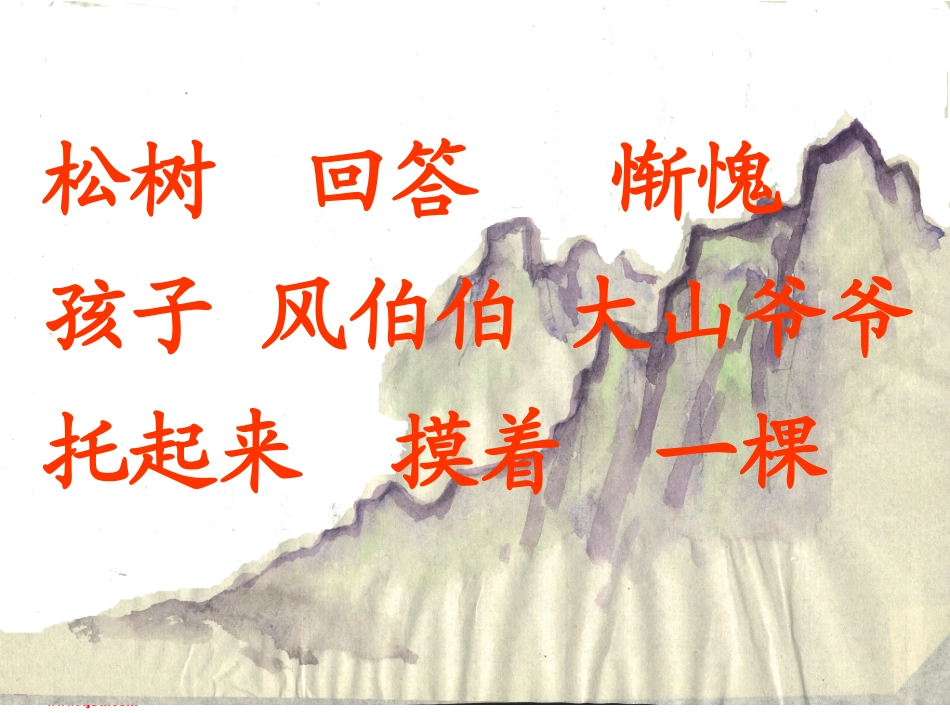 松树 回答 惭愧
孩子 风伯伯 大山爷爷
托起来 摸着 一棵